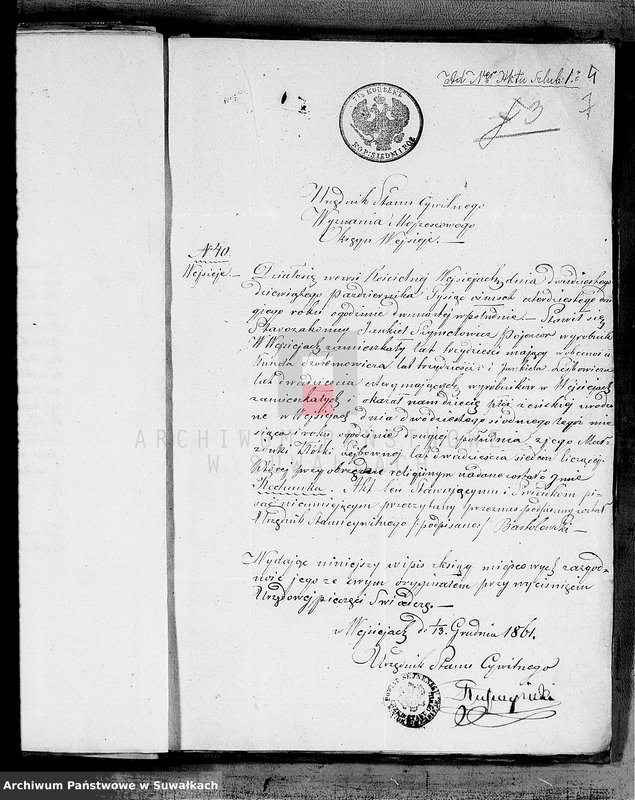 Ad Nr Aktu Szlub: 1. 4
73
7½ KOPIEEK
KOP: SIEDM I PÓŁ
Urzędnik Stanu Cywilnego
Wyznania Mojżeszowego
Okręgu Wejsieje. —
N 40.
Wejsieje. —
Działo się w wsi Kościelnej Wejsiejach dnia dwudziestego
dziewiątego Października Tysiąc ośmset czterdziestego dru
giego roku o godzinie dwunastej w południe — Stawił się
Starozakonny Jankiel Szymchowicz wyrobnik
W Wejsiejach zamieszkały lat trzydzieści mający w obecności
lat trzydzieści i Jankiela Lejbowicza
lat dwadzieścia cztery mających, wyrobników w Wejsiejach
zamieszkałych i okazał nam dziecię płci żeńskiej urodzo
ne w Wejsiejach dnia dwudziestego siódmego tego mie
siąca i roku o godzinie drugiej z południa z jego Mał
żonki Lejbowny lat dwadzieścia siedem liczącej
Której przy obrządku religijnym nadane zostało Imie
Rochanka. Akt ten Stawającymu i Świadkom pi
sać nieumiejącym przeczytany i przez nas podpisany został
Urzędnik Stanu Cywilnego /podpisano/ Bartolewski —
Wydając niniejszy wipis z ksiąg miejscowych za zgod-
ność jego ze swym oryginałem przy wyciśnięciu
Urzędowej pieczęci Świadczę —
w Wejsiejach d. 1/13. Grudnia 1861.
Urzędnik Stanu Cywilnego
ARCHIWUM PAŃSTWOWE
W SUWAŁKACH
Archiwum Państwowe w Suwałkach